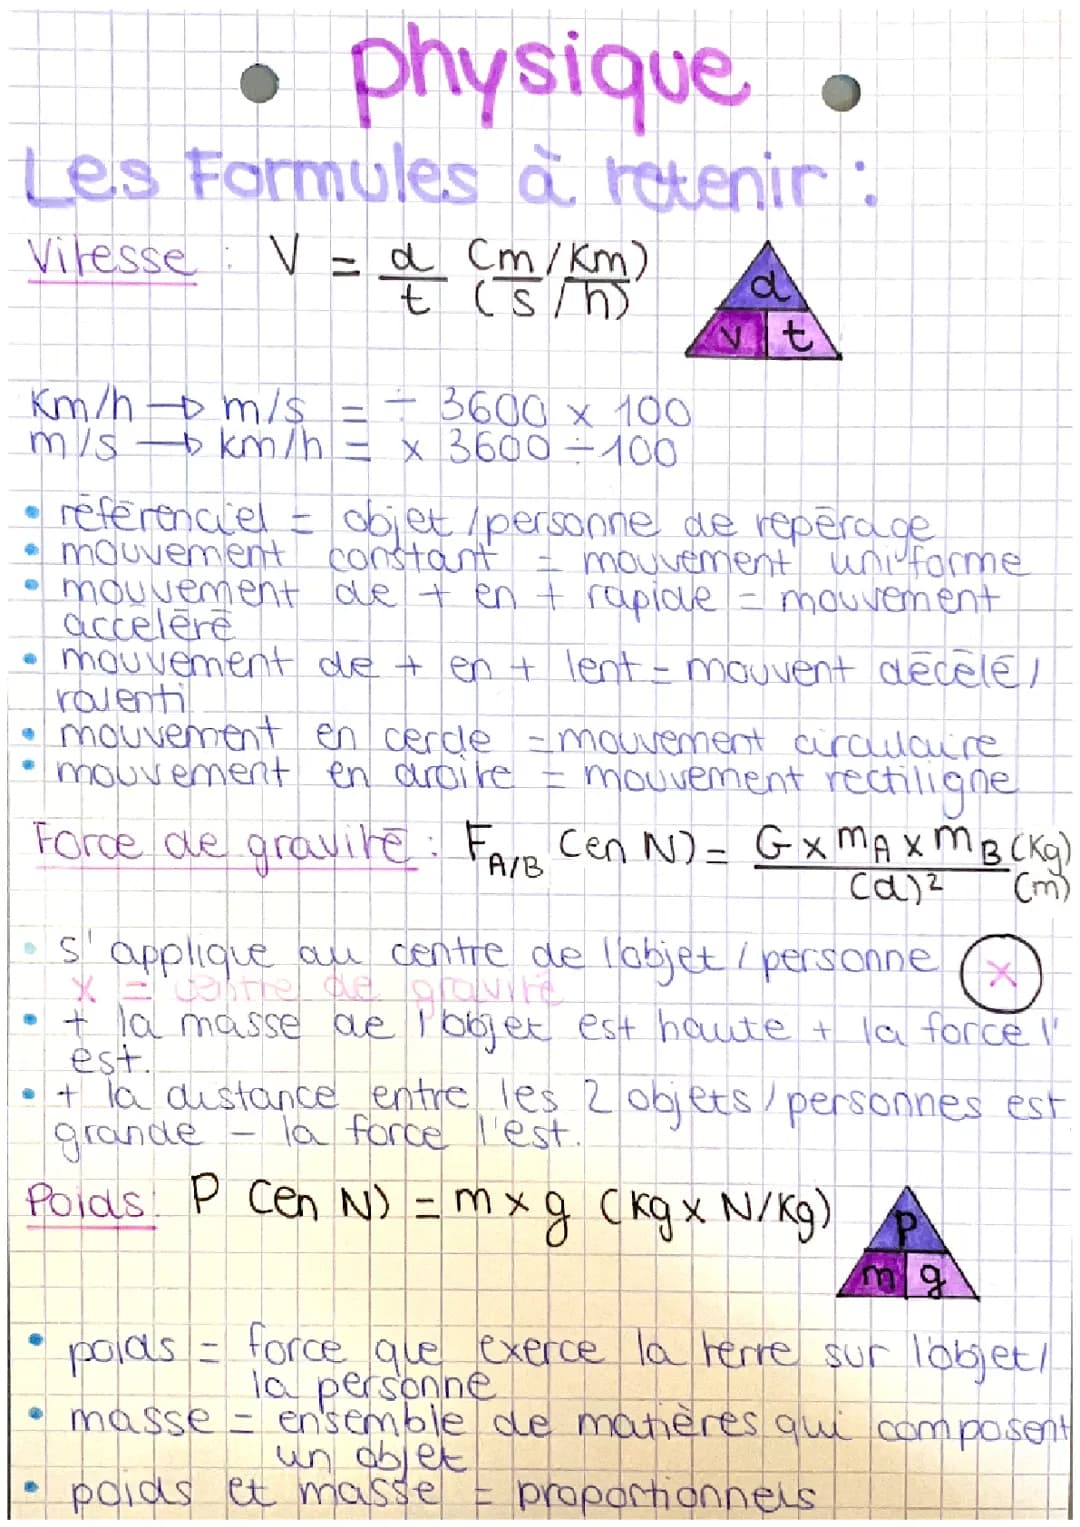 physique
Les Formules à retenir :
Vitesse : V = d/t (m/km) (s/h)
d
v t
Km/h → m/s = ÷ 3600 x 100
m/s → km/h = x 3600 ÷ 100
• référenciel = objet/personne de repérage
• mouvement constant = mouvement uniforme
• mouvement de + en + rapide = mouvement
accéléré
• mouvement de + en + lent = mouvent décélé/
ralenti
• mouvement en cercle = mouvement circulaire
• mouvement en droite = mouvement rectiligne
Force de gravité : F A/B (en N) = G x mA x mB (Kg)
(d)² (m)
• s'applique au centre de l'objet/personne x
x = centre de gravité
• + la masse de l'objet est haute + la force l'
est.
• + la distance entre les 2 objets/personnes est
grande - la force l'est.
Poids : P (en N) = m x g (Kg x N/Kg)
P
m g
• poids = force que exerce la terre sur l'objet/
la personne
• masse = ensemble de matières qui composent
un objet
• poids et masse = proportionnels